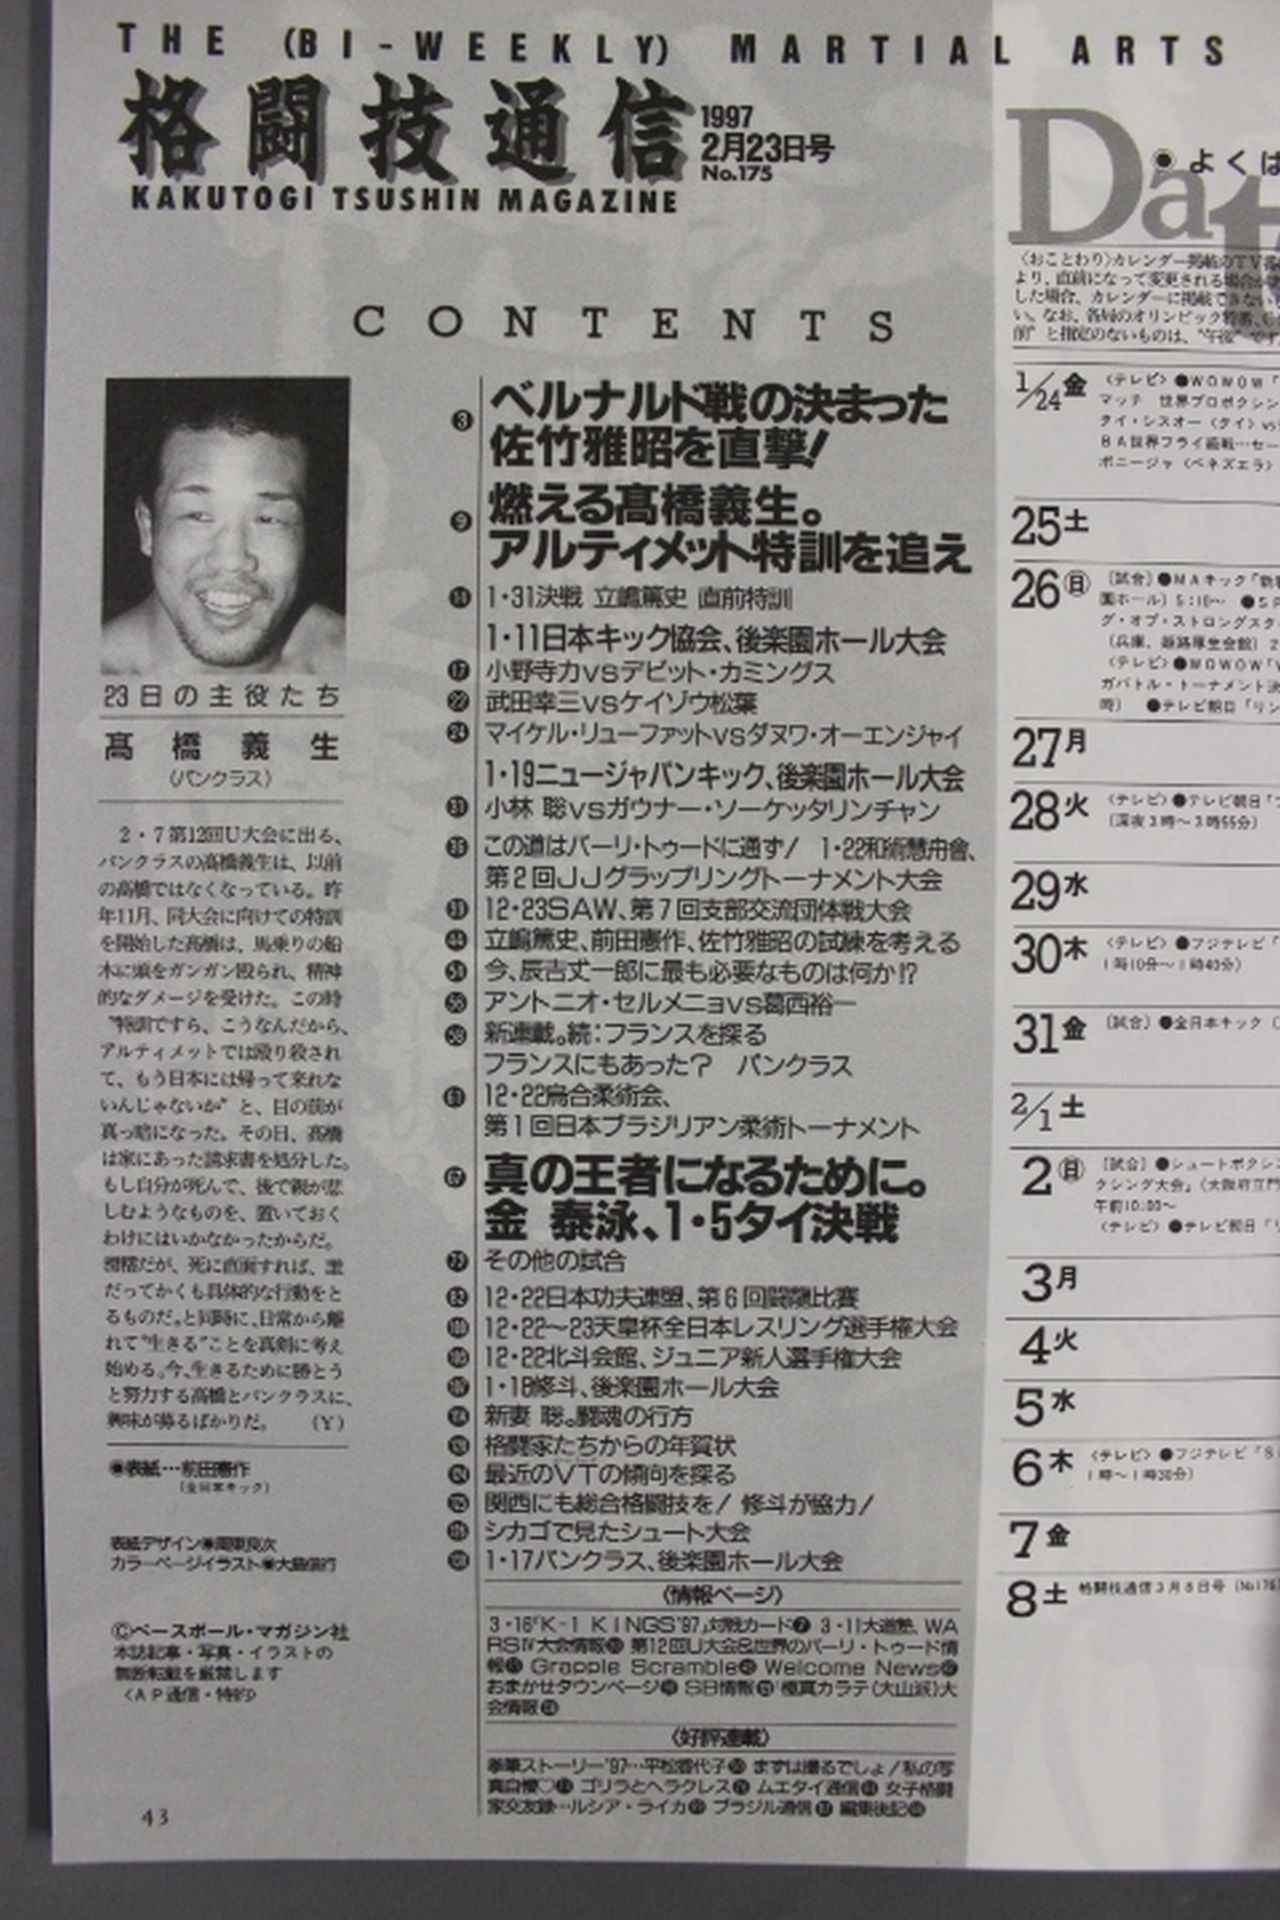 THE (BI-WEEKLY) MARTIAL ARTS
格闘技通信
1997
2月23日号
No.175
KAKUTOGI TSUSHIN MAGAZINE
CONTENTS
23日の主役たち
髙橋義生
(パンクラス)
2・7第12回U大会に出る、
パンクラスの髙橋義生は、以前
の髙橋ではなくなっている。昨
年11月、同大会に向けての特訓
を開始した髙橋は、馬乗りの船
木に頭をガンガン殴られ、精神
的なダメージを受けた。この時
"特訓ですら、こうなんだから、
アルティメットでは殴り殺され
て、もう日本には帰って来れな
いんじゃないか"と、目の前が
真っ暗になった。その日、髙橋
は家にあった請求書を処分した。
もし自分が死んで、後で親が悲
しむようなものを、置いておく
わけにはいかなかったからだ。
滑稽だが、死に直面すれば、誰
だってかくも具体的な行動をと
るものだ。と同時に、日常から離
れて"生きる"ことを真剣に考え
始める。今、生きるために勝とう
と努力する髙橋とパンクラスに、
興味が募るばかりだ。 (Y)
●表紙…前田憲作
(全日本キック)
表紙デザイン●周東良次
カラーページイラスト●大島信行
©ベースボール・マガジン社
本誌記事・写真・イラストの
無断転載を厳禁します
〈AP通信・特約〉
43
❸ ベルナルド戦の決まった
佐竹雅昭を直撃!
❾ 燃える髙橋義生。
アルティメット特訓を追え
1・31決戦 立嶋篤史 直前特訓
1・11日本キック協会、後楽園ホール大会
⓱ 小野寺力vsデビット・カミングス
武田幸三vsケイゾウ松葉
マイケル・リューファットvsダヌワ・オーエンジャイ
1・19ニュージャパンキック、後楽園ホール大会
小林 聡vsガウナー・ソーケッタリンチャン
この道はバーリ・トゥードに通ず! 1・22和術慧舟會、
第2回JJグラップリングトーナメント大会
12・23SAW、第7回支部交流団体戦大会
立嶋篤史、前田憲作、佐竹雅昭の試練を考える
今、辰吉丈一郎に最も必要なものは何か!?
アントニオ・セルメニョvs葛西裕一
新連載。続:フランスを探る
フランスにもあった? パンクラス
12・22烏合柔術会、
第1回日本ブラジリアン柔術トーナメント
真の王者になるために。
金 泰泳、1・5タイ決戦
その他の試合
12・22日本功夫連盟、第6回闘龍比賽
12・22〜23天皇杯全日本レスリング選手権大会
12・22北斗会館、ジュニア新人選手権大会
1・18修斗、後楽園ホール大会
新妻 聡。闘魂の行方
格闘家たちからの年賀状
最近のVTの傾向を探る
関西にも総合格闘技を! 修斗が協力!
シカゴで見たシュート大会
1・17パンクラス、後楽園ホール大会
〈情報ページ〉
3・16『K-1 KINGS'97』対戦カード❼ 3・11大道塾、WA
RSⅣ大会情報 第12回U大会&世界のバーリ・トゥード情
報 Grapple Scramble Welcome News
おまかせタウンページ SB情報 極真カラテ(大山派)大
会情報
〈好評連載〉
拳筆ストーリー'97…平松香代子 まずは撮るでしょ!私の写
真自慢♡ ゴリラとヘラクレス ムエタイ通信 女子格闘
家交友録…ルシア・ライカ ブラジル通信 編集後記
Dat
●よくは
〈おことわり〉カレンダー掲載のTV番
より、直前になって変更される場合が
した場合、カレンダーに掲載できない
い。なお、各局のオリンピック特番、
前"と指定のないものは、"午後"です
1/24金 〈テレビ〉●WOWOW「
マッチ 世界プロボクシン
タイ・シスオー〈タイ〉vs
BA世界フライ級戦…セー
ボニージャ〈ベネズエラ〉
25土
26㊐ 〔試合〕●MAキック「新
園ホール〉5:10〜 ●SP
グ・オブ・ストロングスタ
〔兵庫、姫路厚生会館〕2
〈テレビ〉●WOWOW「
ガバトル・トーナメント決
時) ●テレビ朝日「リン
27月
28火 〈テレビ〉●テレビ朝日「
(深夜3時〜3時55分)
29水
30木 〈テレビ〉●フジテレビ「
1時10分〜1時40分)
31金 〔試合〕●全日本キック〔
2/1土
2㊐ 〔試合〕●シュートボクシ
クシング大会」(大阪府立門
午前10:00〜
〈テレビ〉●テレビ朝日「リ
3月
4火
5水
6木 〈テレビ〉●フジテレビ「S
1時〜1時30分)
7金
8土 格闘技通信3月8日号(No176)